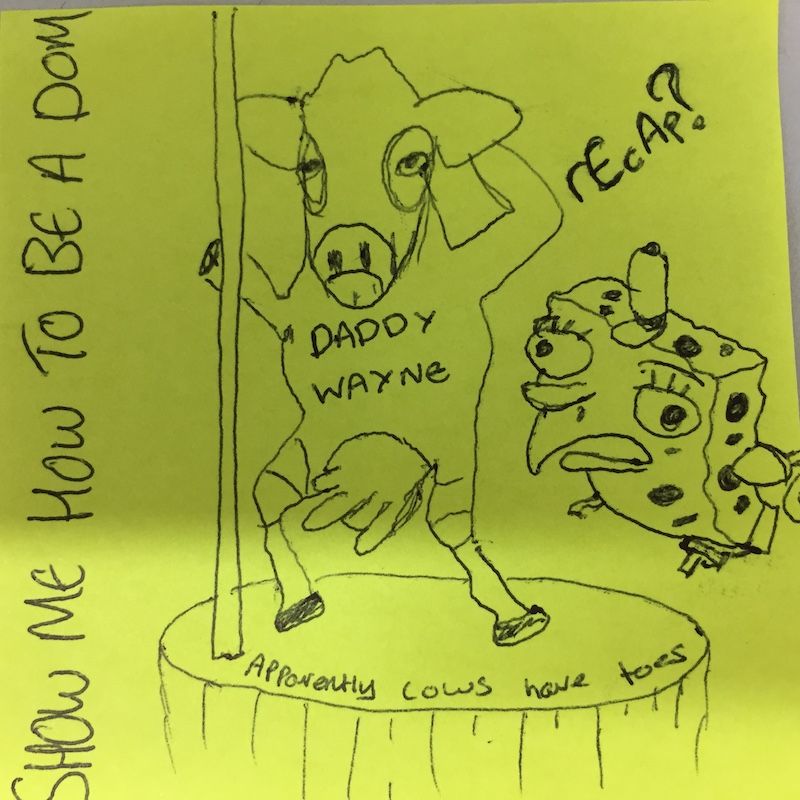 SHOW ME HOW TO BE A DOM
rEcAp?
DADDY
WAYNE
Apparently cows have toes